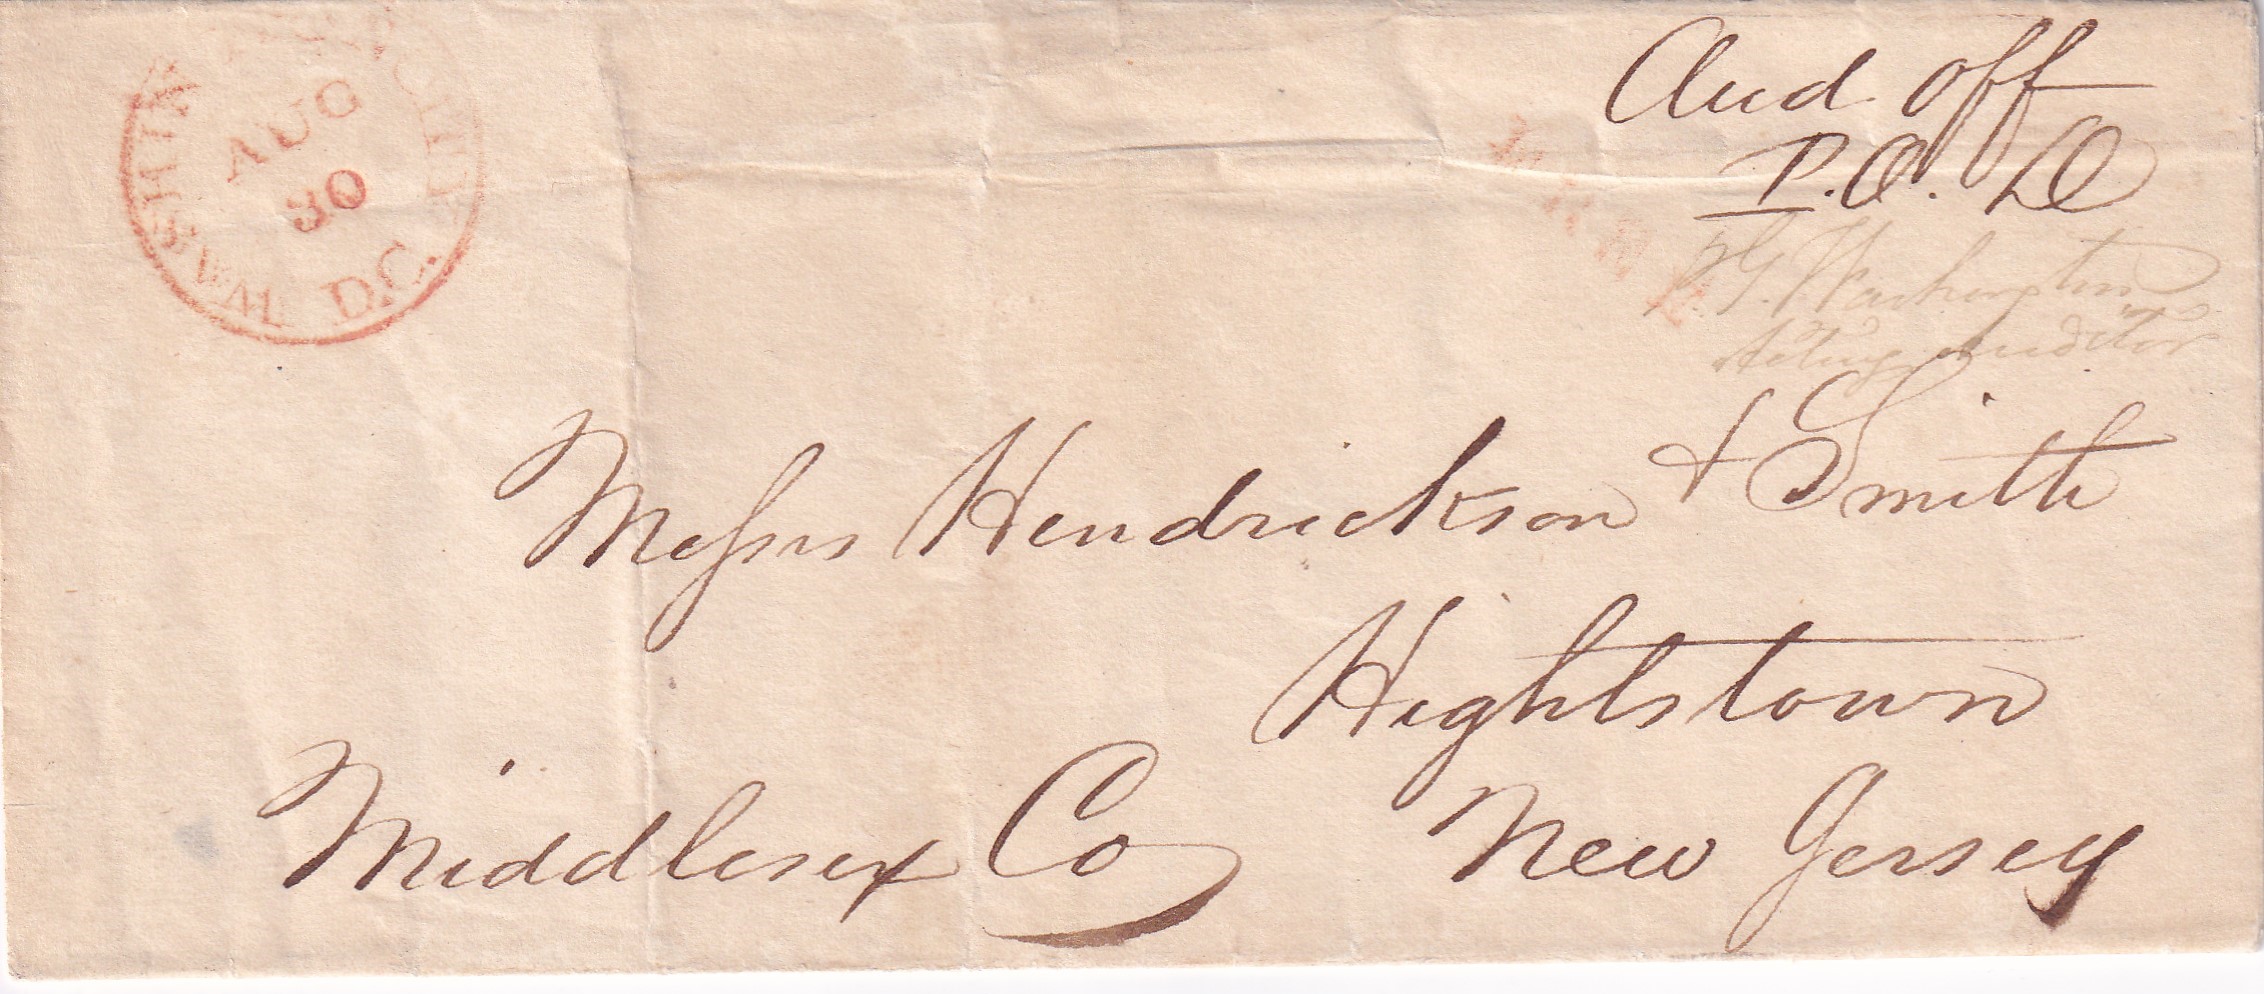 WASHINGTON CITY D.C.
AUG
30
Aud off
P.O. D
FREE
P. G. Washington
Acting Auditor
Messrs Hendrickson & Smith
Hightstown
Middlesex Co New Jersey